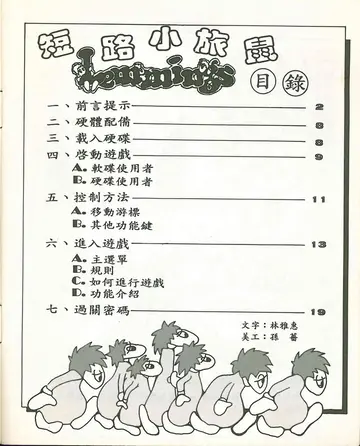 短路小旅鼠
Lemmings
目錄
一、前言提示 2
二、硬體配備 8
三、載入硬碟 8
四、啓動遊戲 9
A. 軟碟使用者
B. 硬碟使用者
五、控制方法 11
A. 移動游標
B. 其他功能鍵
六、進入遊戲 13
A. 主選單
B. 規則
C. 如何進行遊戲
D. 功能介紹
七、過關密碼 19
文字：林雅惠
美工：孫蕾